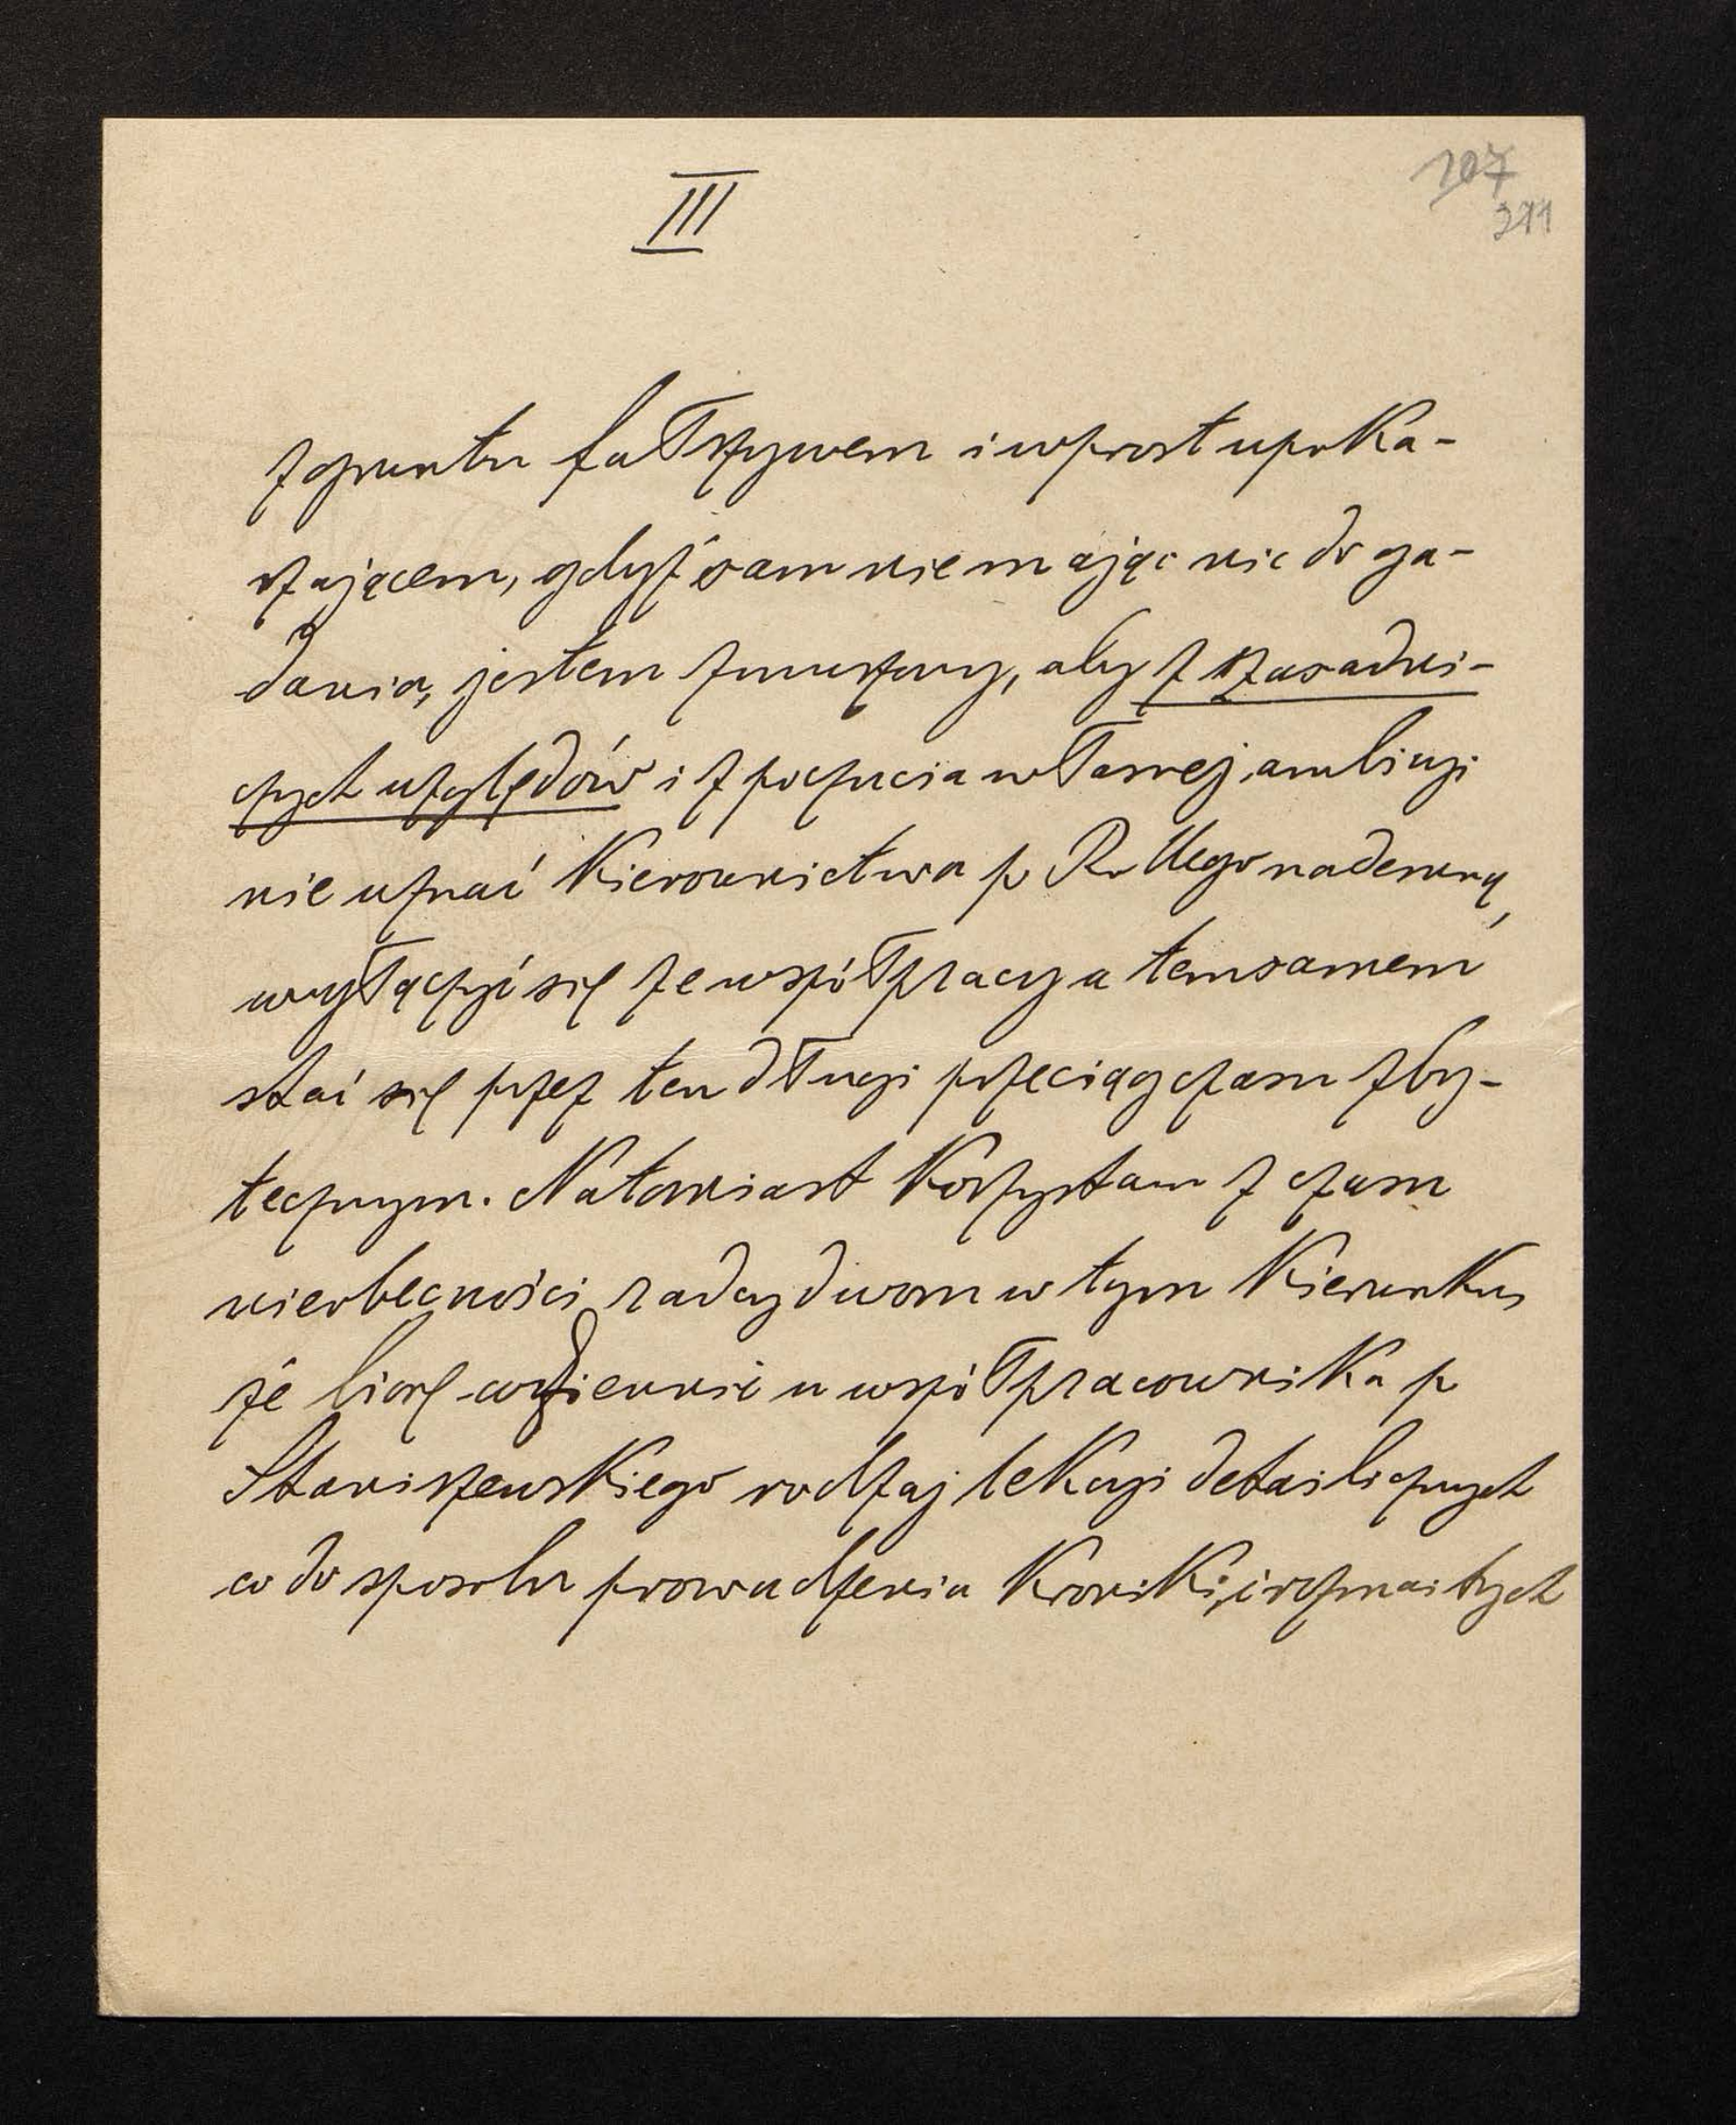 III
107
211
z gruntu fałszywem i wprost upoka-
rzającem, gdyż sam nie mając nic do ga-
dania, jestem zmuszony, aby z zasadni-
czych względów i z poczucia własnej ambicyi
nie uznać kierownictwa p Rollego nademną,
wyłączyć się ze współpracy a temsamem
stać się przez ten długi przeciąg czasu zby-
tecznym. Natomiast korzystam z czasu
nieobecności radcy dworu w tym kierunku,
że biorę codziennie u współpracownika p
Staniszewskiego rodzaj lekcyi detailicznych
co do sposobu prowadzenia kroniki, i rozmaitych